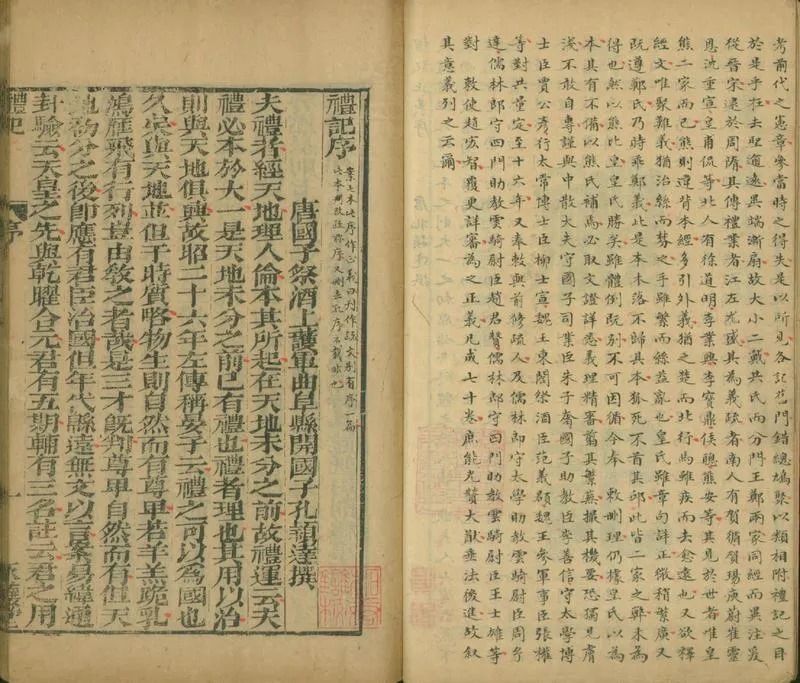 考前代之憲章參當時之得失是以所見各記舊門錯總鳩聚以類相附禮記之目
於是乎在去聖逾遠異端漸扇故大小二戴共氏而分門王鄭兩家同經而異注爰
從晉宋逮於周隋其傳禮業者江左尤盛其為義疏者南人有賀循賀瑒庾蔚崔靈
恩沈重宣皇甫侃等北人有徐道明李業興李寶鼎侯聰熊安等其見於世者唯皇
熊二家而已熊則違背本經多引外義猶之楚而北行馬雖疾而去愈遠也又欲釋
經文唯聚難義猶治絲而棼之手雖繁而絲益亂也皇氏雖章句詳正微稍繁廣又
既遵鄭氏乃時乖鄭義此是木落不歸其本狐死不首其邱此皆二家之弊未為
得也然以熊比皇皇氏勝矣雖體例既別不可因循今奉 敕刪理仍據皇氏以為
本其有不備以熊氏補焉必取文證詳悉義理精審翦其繁蕪撮其機要恐獨見膚
淺不敢自專謹與中散大夫守國子司業臣朱子奢國子助教臣李善信守太學博
士臣賈公彥行太常博士臣柳士宣魏王東閣祭酒臣范義頵魏王參軍事臣張權
等對共量定至十六年又奉 敕與前修疏人及儒林郎守太學助教雲騎尉臣周
達儒林郎守四門助教雲騎尉臣趙君贊儒林郎守四門助教雲騎尉臣王士雄等
對 敕使趙宏智覆更詳審為之正義凡成七十卷庶能光贊大猷垂法後進故敘
其意義列之云爾
禮記序
唐國子祭酒上護軍曲阜縣開國子孔穎達撰
夫禮者經天地理人倫本其所起在天地未分之前故禮運云夫
禮必本於大一是天地未分之前已有禮也禮者理也其用以治
則與天地俱興故昭二十六年左傳稱晏子云禮之可以為國也
久矣與天地並但于時質略物生則自然而有尊卑若羊羔跪乳
鴻雁飛有行列豈由教之者哉是三才既判尊卑自然而有但天
地初分之後即應有君臣治國但年代緜遠無文以言案易緯通
卦驗云天皇之先與乾曜合元君有五期輔有三名註云君之用
禮記
序
一